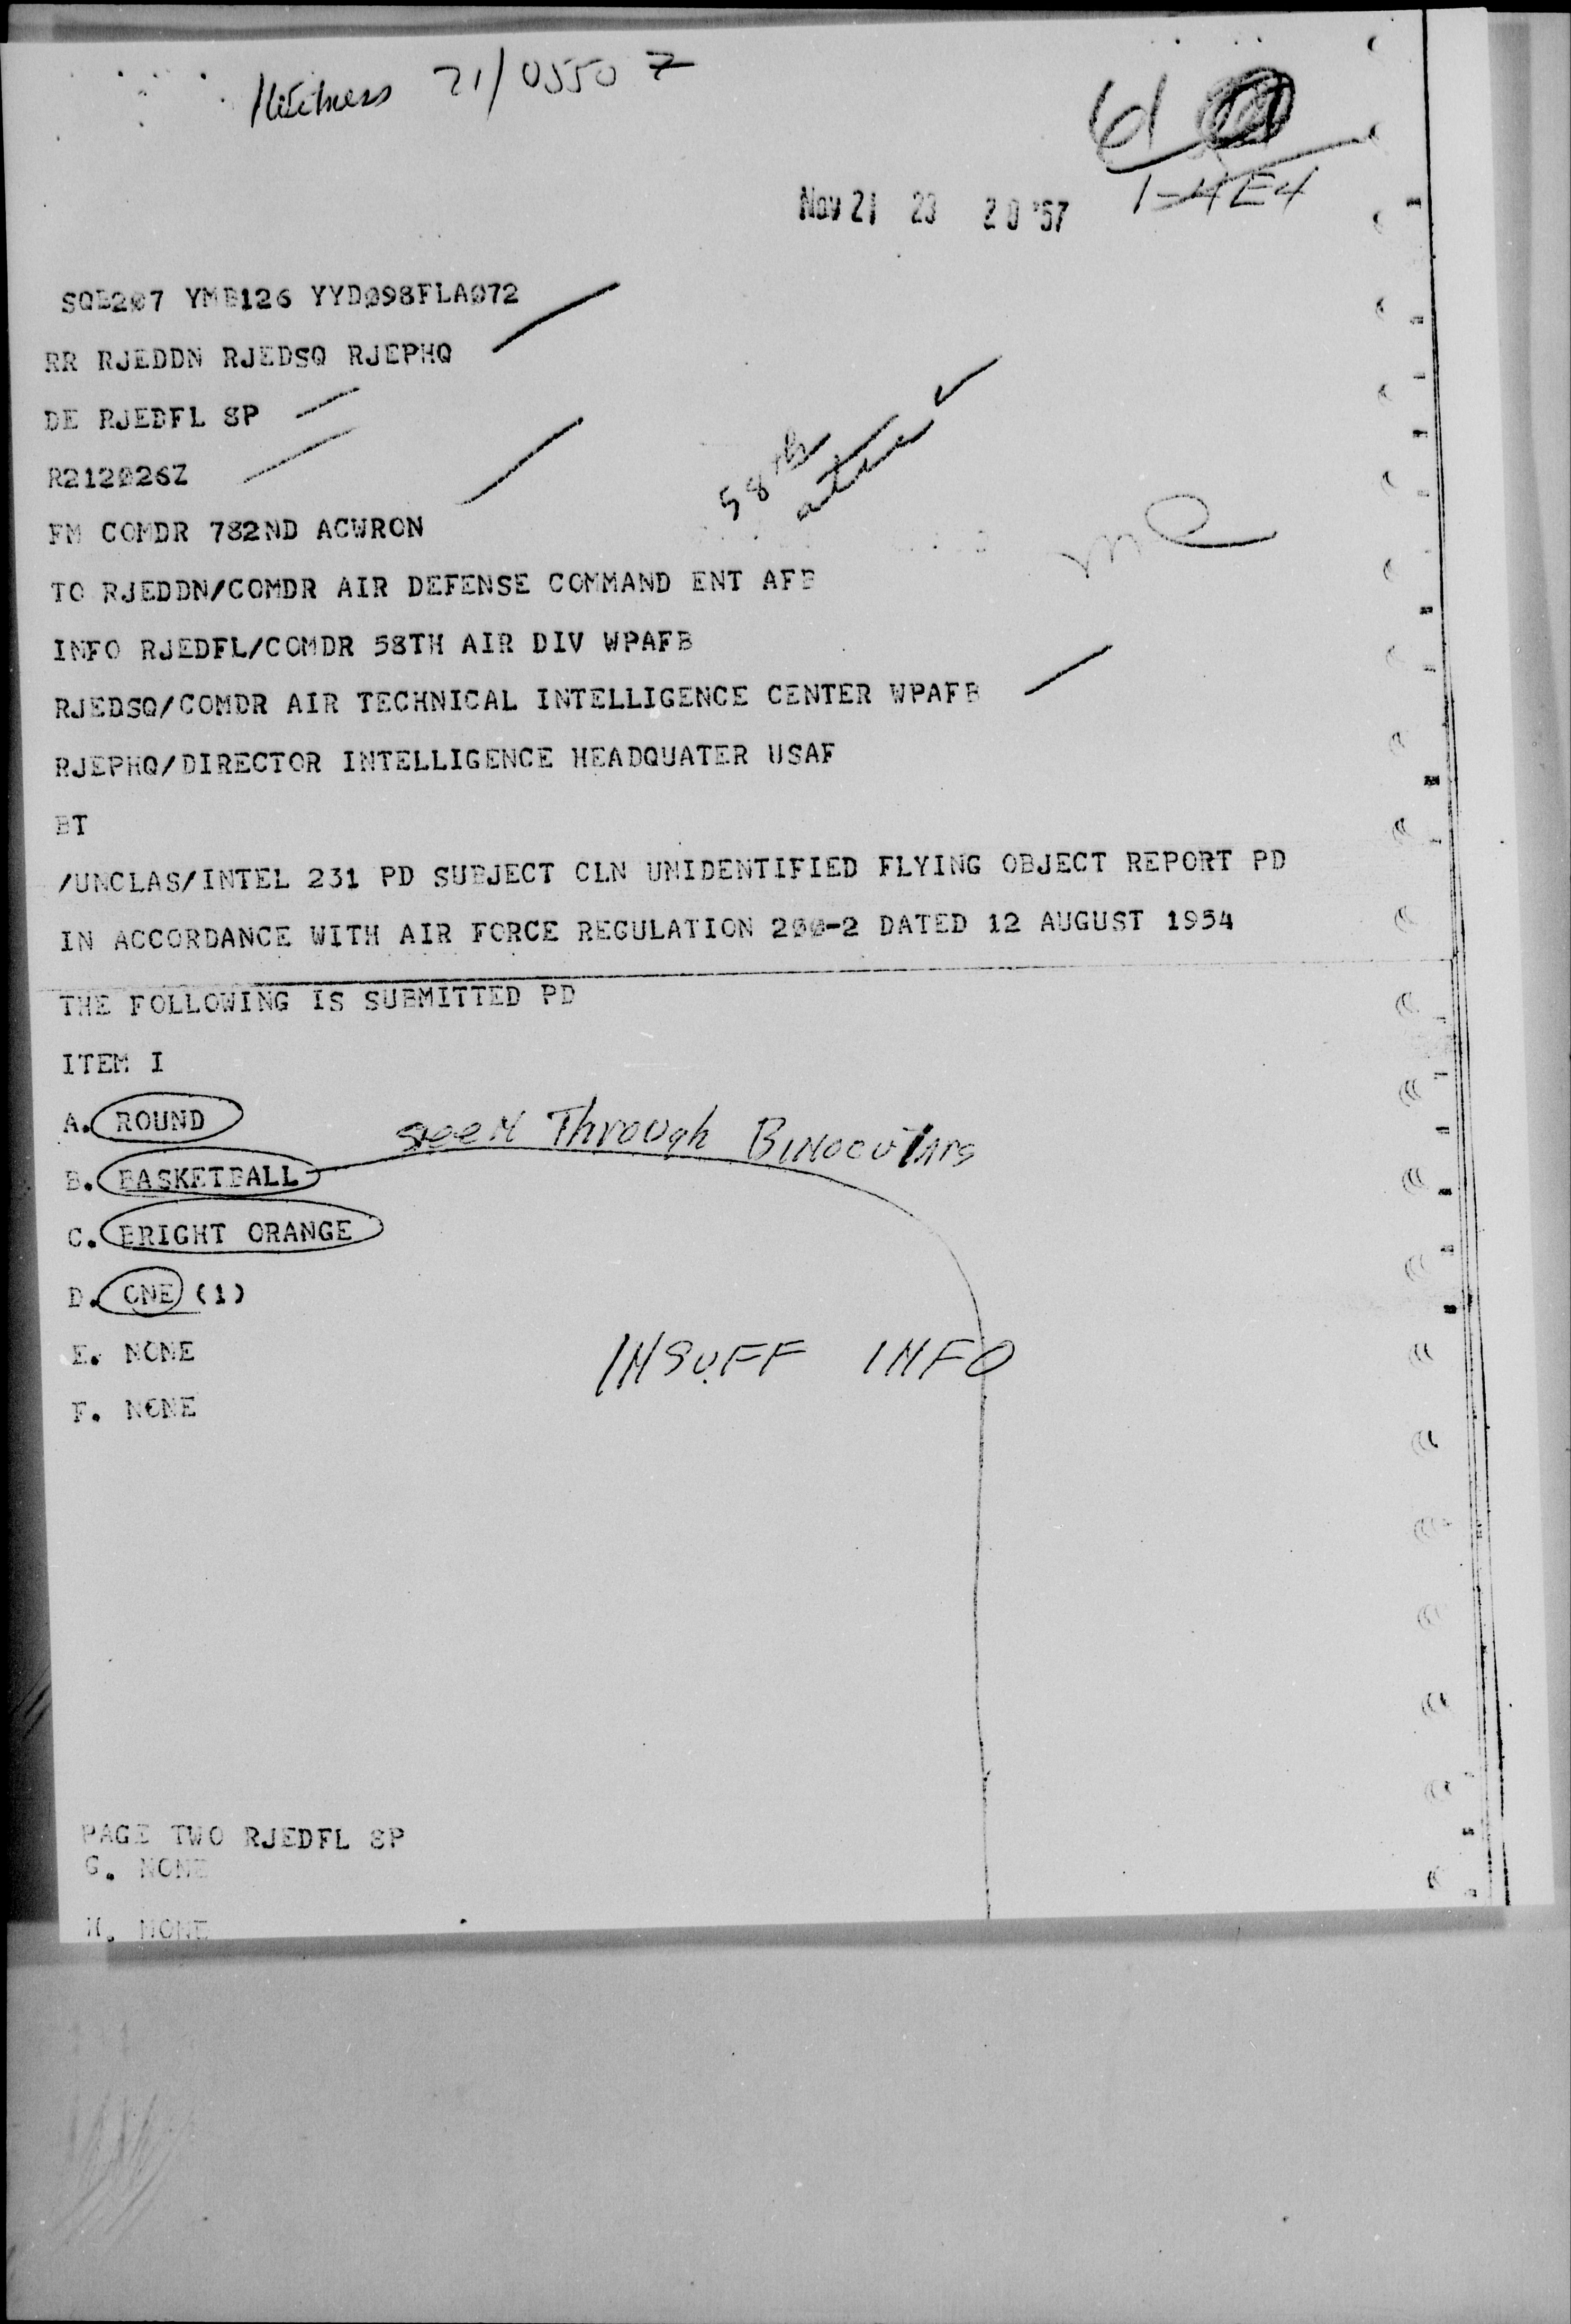 21/0550 Z
61
1-4E4
Nov 21 23 20 '57
SQB207 YMB126 YYDØ98FLAØ72
RR RJEDDN RJEDSQ RJEPHQ
DE RJEDFL 8P
R212Ø26Z
58th
FM COMDR 782ND ACWRON
TO RJEDDN/COMDR AIR DEFENSE COMMAND ENT AFB
INFO RJEDFL/COMDR 58TH AIR DIV WPAFB
RJEDSQ/COMDR AIR TECHNICAL INTELLIGENCE CENTER WPAFB
RJEPHQ/DIRECTOR INTELLIGENCE HEADQUATER USAF
BT
/UNCLAS/INTEL 231 PD SUBJECT CLN UNIDENTIFIED FLYING OBJECT REPORT PD
IN ACCORDANCE WITH AIR FORCE REGULATION 2ØØ-2 DATED 12 AUGUST 1954
THE FOLLOWING IS SUBMITTED PD
ITEM I
A. ROUND
seen Through Binoculars
B. BASKETBALL
C. BRIGHT ORANGE
D. ONE (1)
E. NONE
INSUFF INFO
F. NONE
PAGE TWO RJEDFL 8P
G. NONE
H. NONE